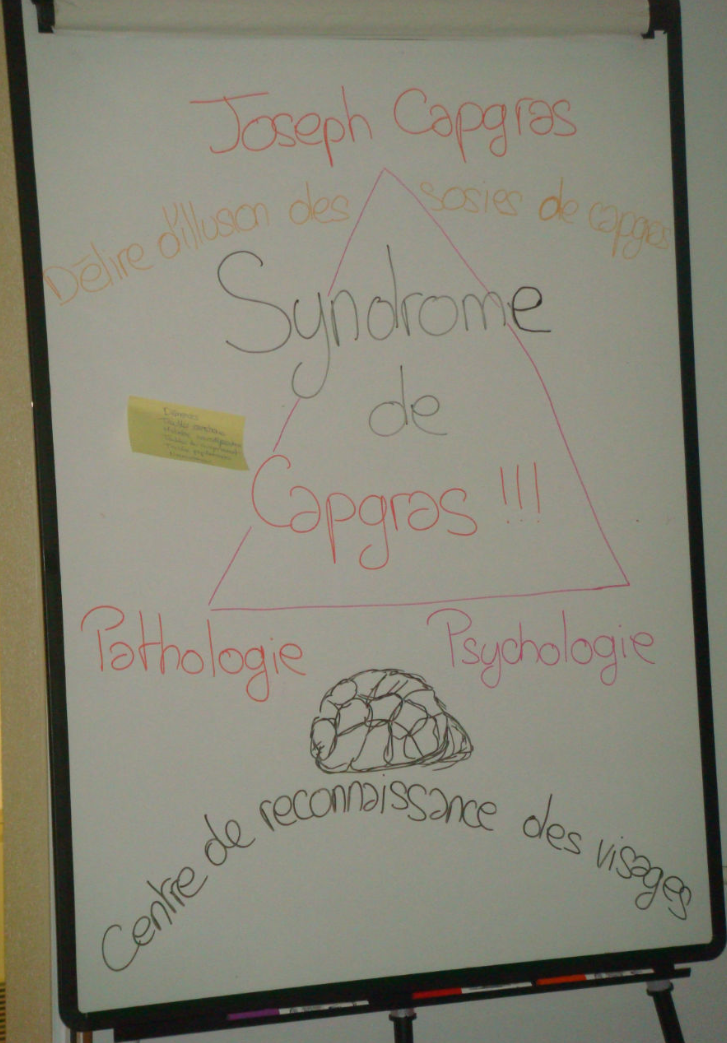 Joseph Capgras
Délire d'illusion des sosies de capgras
Syndrome
de
Capgras !!!
Pathologie
Psychologie
Centre de reconnaissance des visages